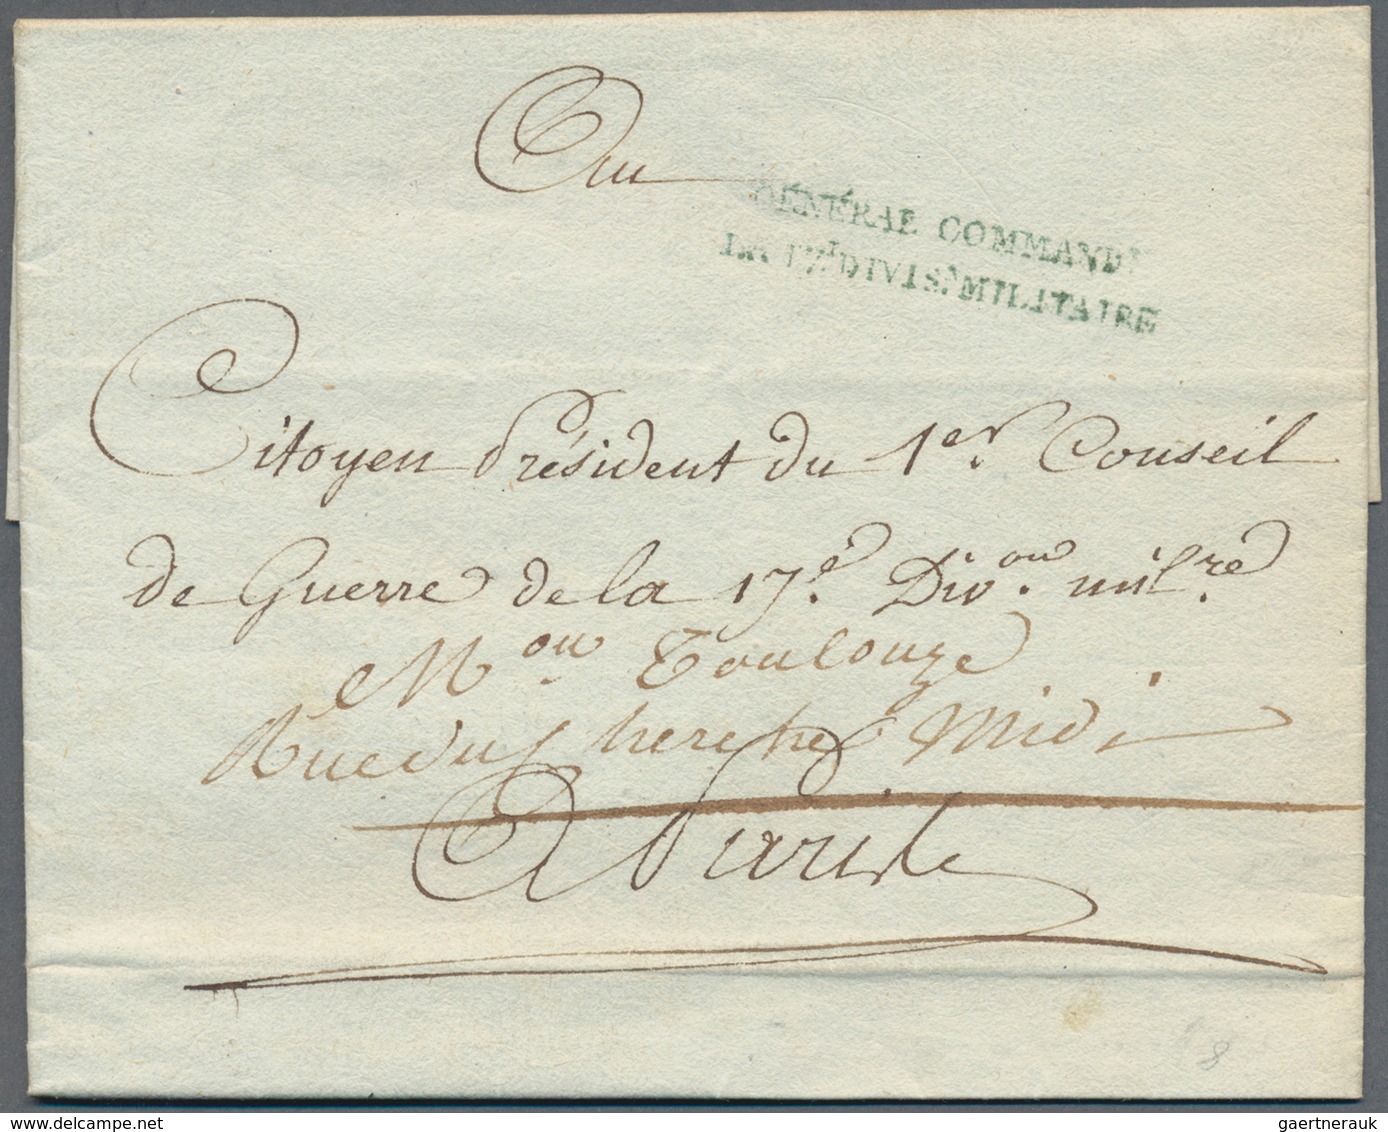 Au
GÉNÉRAL COMMANDt
LA 17e DIVISon MILITAIRE
Citoyen Président du 1er. Conseil
de Guerre de la 17e. Divon. milre.
Mon Toulouze
Rue du Cherche Midi
A Paris
8
delcampe.net
gaertnerauk